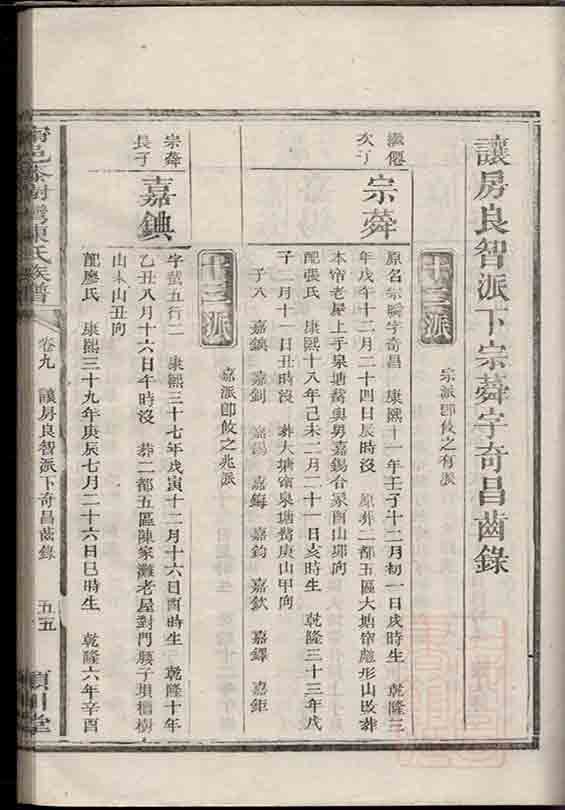 讓房良智派下宗蕣字奇昌齒錄
十二派
宗派卽攸之有派
次子
宗蕣
原名宗舜字奇昌 康熙十一年壬子十二月初一日戌時生 乾隆三
年戊午十二月二十四日辰時沒 原葬二都五區大塘帘 形山改葬
本帘老屋上手泉塘 與男嘉錫合冢酉山 向
配張氏 康熙十八年己未二月二十一日亥時生 乾隆三十三年戊
子二月十一日丑時沒 葬大塘帘泉塘 庚山甲向
子八 嘉錪 嘉釗 嘉錫 嘉鋂 嘉鈞 嘉欽 嘉鐸 嘉鉅
十三派
嘉派卽攸之兆派
宗蕣
長子
嘉錪
字 五行二 康熙三十七年戊寅十二月十六日酉時生 乾隆十年
乙丑八月十六日午時沒 葬二都五區陳家灘老屋對門 子 樹
山未山丑向
配廖氏 康熙三十九年庚辰七月二十六日巳時生 乾隆六年辛酉
陳氏族譜
卷九 讓房良智派下奇昌齒錄
五五
潁川堂